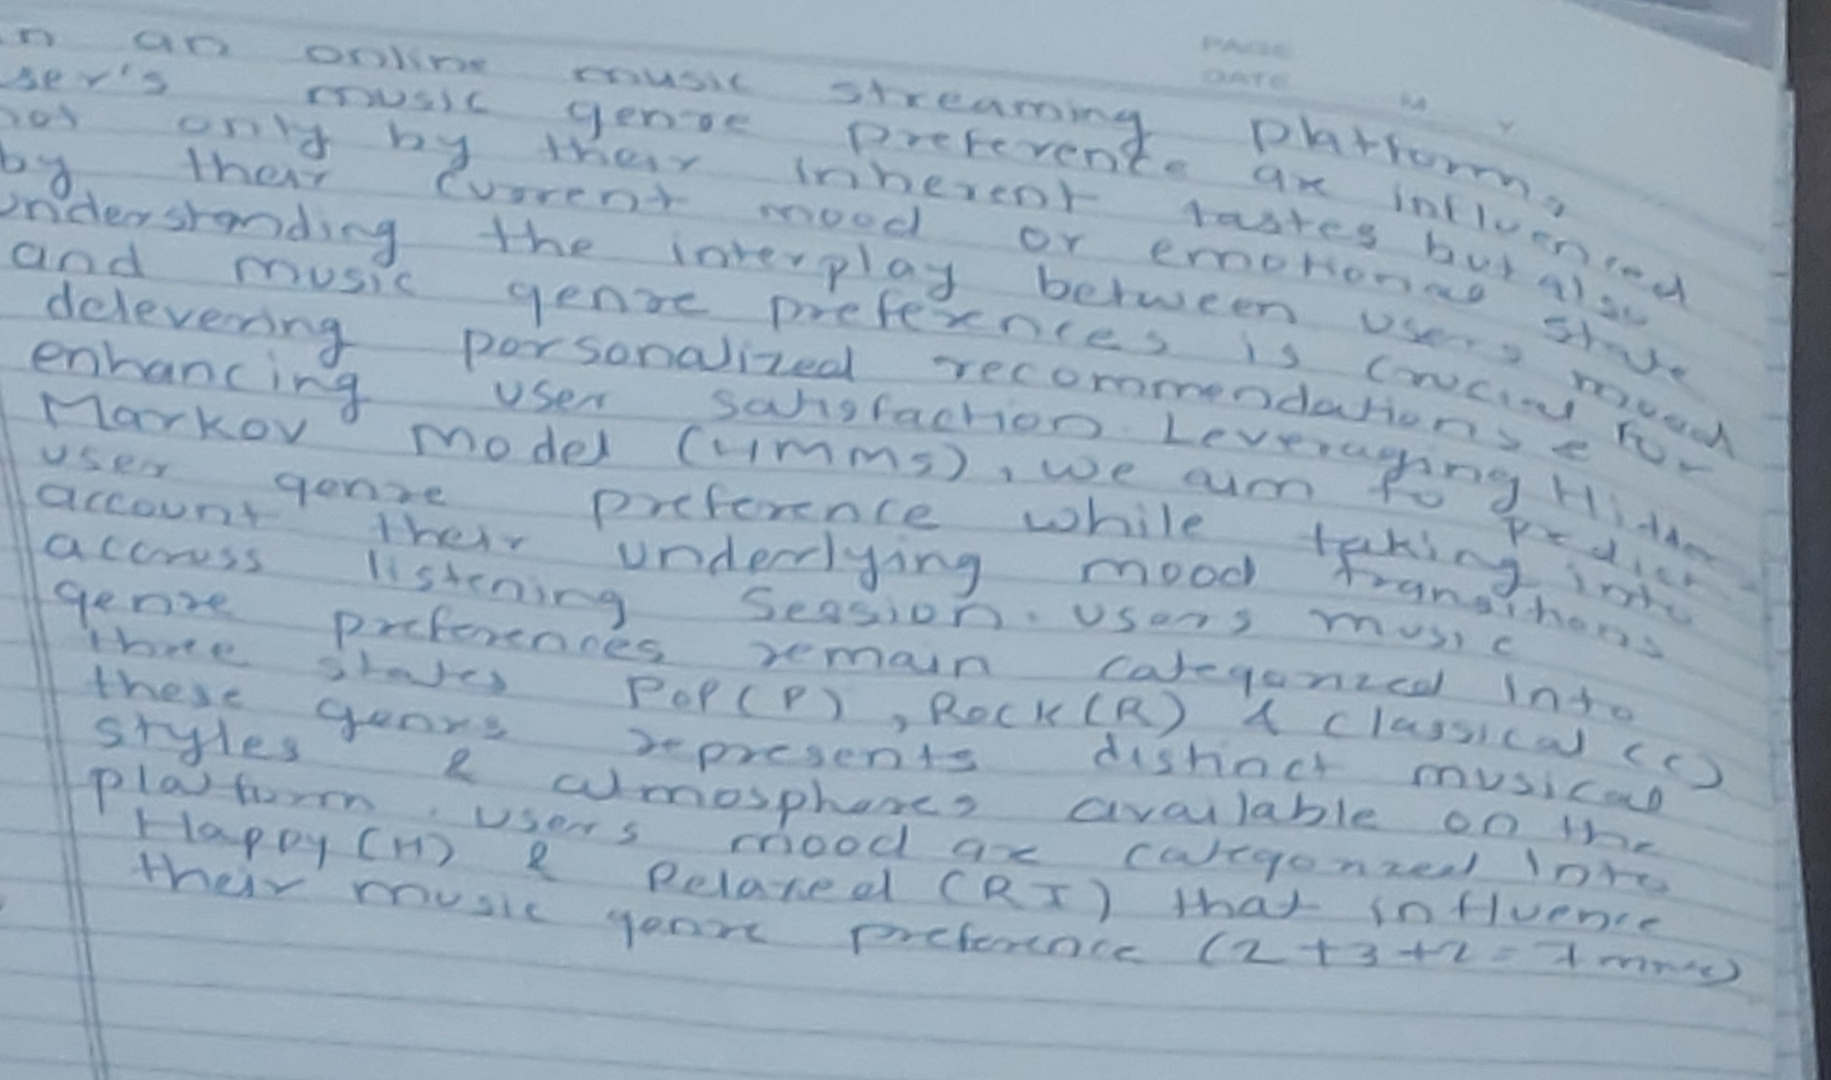 PAGE
DATE
M Y
n an online music streaming platform,
ser's music genre preference are influenced
not only by their inherent tastes but also
by their current mood or emotional state
understanding the interplay between users mood
and music genre preferences is crucial for
delevering personalized recommendations &
enhancing user satisfaction. Leveraging Hidden
Markov Model (HMMs), we aim to predict
user genre preference while taking into
account their underlying mood transitions
accross listening session. users music
genre preferences remain categorized into
three states Pop(P), Rock(R) & classical (C)
these genres represents distinct musical
styles & atmospheres available on the
platform. users mood are categorized into
Happy (H) & Relaxed (RI) that influence
their music genre preference (2+3+2=7